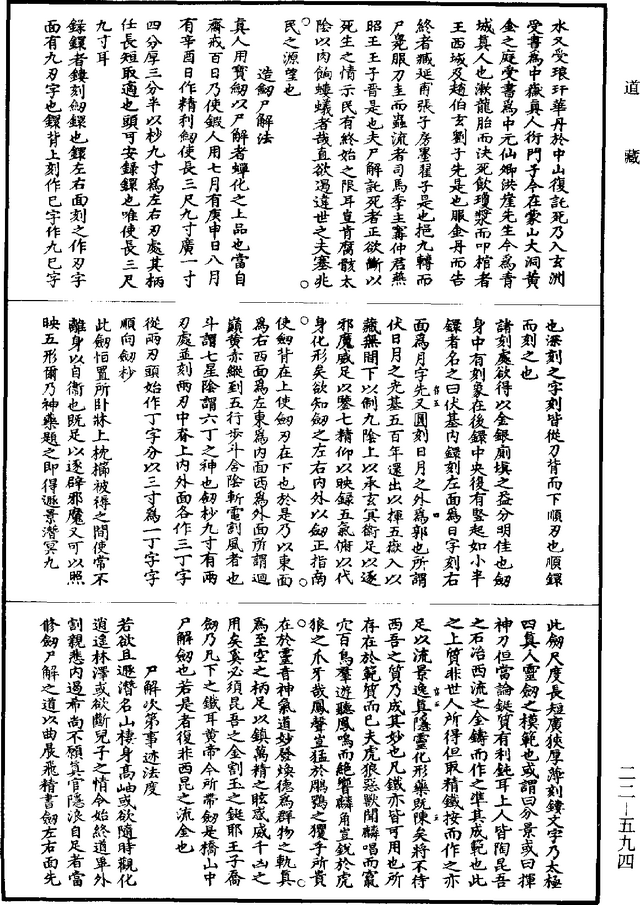 道藏
水又受琅玕華丹於中山復託死乃入玄洲
受書為中嶽真人衍門子今在蒙山大洞黃
金之庭受書為中元仙卿洪崖先生今為青
城真人也漱龍胎而決死飲瓊漿而叩棺者
王西城及趙伯玄劉子先是也服金丹而告
終者臧延甫張子房墨翟子是也挹九轉而
尸臰服刀圭而蟲流者司馬季主甯仲君燕
昭王王子晉是也夫尸解託死者正欲斷以
死生之情示民有終始之限耳豈肯腐骸太
陰以肉餉螻蟻者哉直欲遏違世之夫塞兆
民之源望也
造劒尸解法
真人用寶劒以尸解者蟬化之上品也當自
齋戒百日乃使鍛人用七月有庚申日八月
有辛酉日作精利劒使長三尺九寸廣一寸
四分厚三分半以杪九寸為左右刃處其柄
任長短取適也頭可安錄鐶也唯使長三尺
九寸耳
錄鐶者鏤刻劒鐶也鐶左右面刻之作刃字
面有九刃字也鐶背上刻作巳字作九巳字
也深刻之字刻皆從刀背而下順刃也順鐶
而刻之也
諸刻處欲得以金銀廁填之益分明佳也劒
身中有刻象在後鐶中央復有豎起如小半
鐶者名之曰伏基內鐶刻左面為日字刻右
面為月字先又圓刻日月之外為郭也所謂
伏日月之光基五百年還出以揮五嶽入以
藏無間下以制九陰上以承玄冥銜足以逐
邪魔威足以鑒七精仰以映錄五氣俯以代
身化形矣欲知劒之左右內外以劒正指南
使劒背在上使劒刃在下也於是乃以東面
為右西面為左東為內面西為外面所謂迴
巔黃赤縱到五行步斗含陰斬電割風者也
斗謂七星陰謂六丁之神也劒杪九寸有兩
刃處並刻兩刃中脊上內外面各作三丁字
從兩刃頭始作丁字分以三寸為一丁字字
順向劒杪
此劒恒置所臥牀上枕櫛被褥之間使常不
離身以自衛也既足以逐辟邪魔又可以照
映五形爾乃神藥題之即得遁景潛冥九
此劒尺度長短廣狹厚薄刻鏤文字乃太極
四真人靈劒之模範也或謂曰分景或曰揮
神刀但當論鋌質有利鈍耳上人皆陶昆吾
之石冶西流之金鑄而作之準其成範也此
之上質非世人所得但取精鐵按而作之亦
足以流景逸真隱靈化形藥既陳矣將不待
西吾之質乃成其妙也凡鐵亦皆可用也所
存在於範質而已夫虎狼惡獸聞麟唱而竄
穴百鳥羣遊聽鳳鳴而絕響麟角豈銳於虎
狼之爪牙哉鳳聲豈猛於鵰鶚之玃乎所貴
在於靈音神氣道妙發煥德為群物之軌真
為至空之柄足以鎮萬精之眩惑威千凶之
用矣奚必須昆吾之金割玉之鋌耶王子喬
劒乃凡下之鐵耳黃帝今所帶劒是橋山中
尸解劒也若是者復非西昆之流金也
尸解次第事迹法度
若欲且遯潛名山棲身高岫或欲隨時觀化
逍遙林澤或欲斷兒子之情令始終道畢外
割親悉內過希尚不願真官隱浪自足者當
修劒尸解之道以曲晨飛精書劒左右面先
二二—五九四